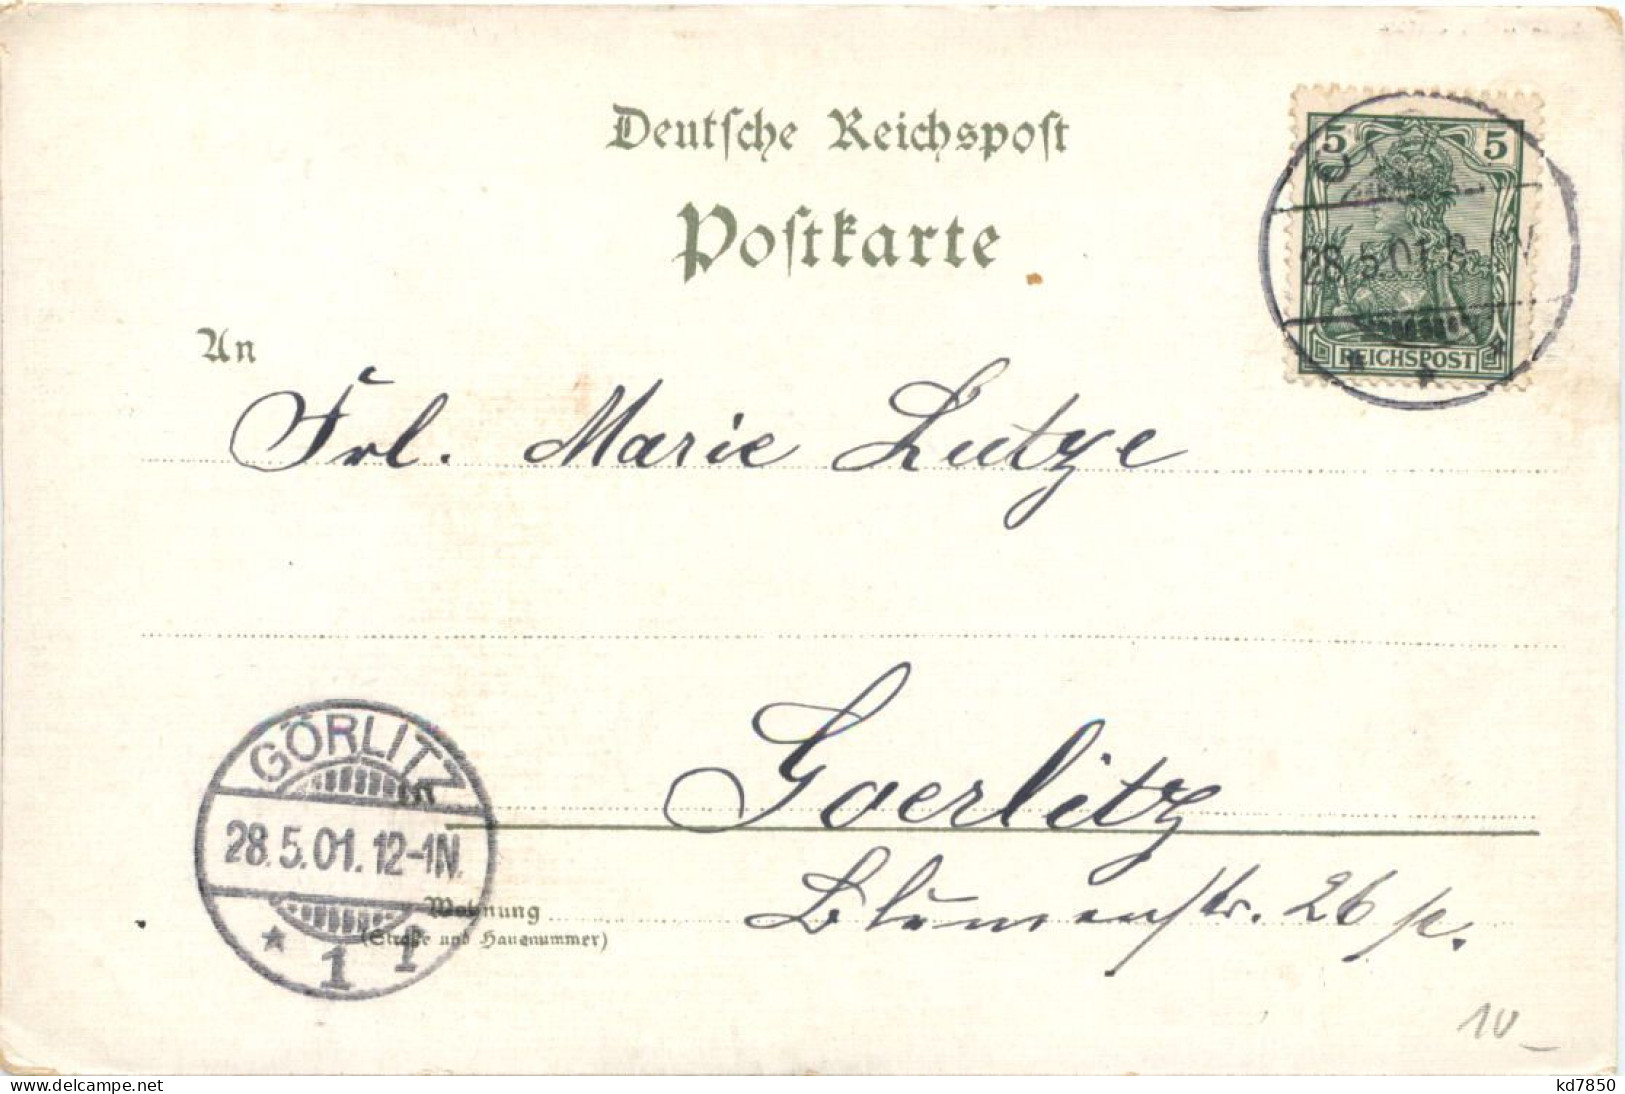 Deutsche Reichspost
Postkarte
5 5
28.5.01.
REICHSPOST
An
Frl. Marie Lutze
GÖRLITZ
28.5.01.12-1N.
* 1 f
Goerlitz
Wohnung
(Straße und Hausnummer)
Blumenstr. 26 p.
10
delcampe.net
kd7850